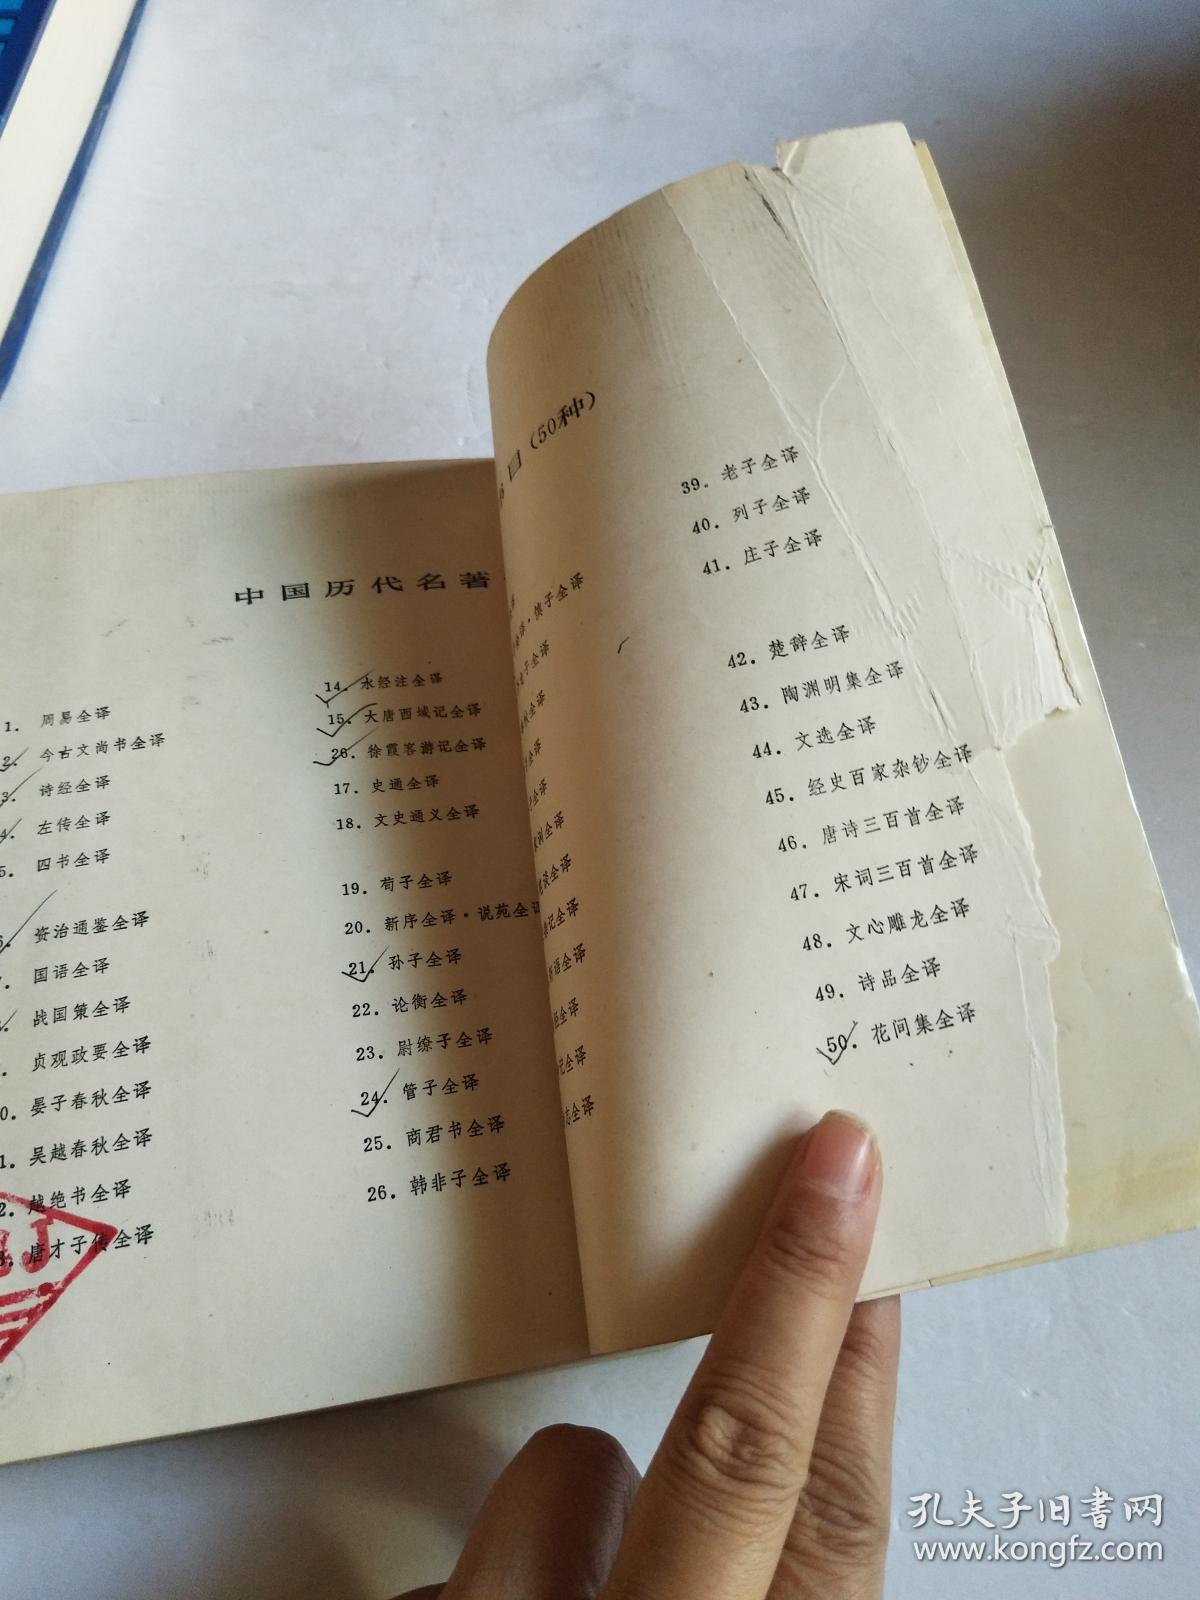 中国历代名著
1. 周易全译
2. 今古文尚书全译
3. 诗经全译
4. 左传全译
5. 四书全译
资治通鉴全译
国语全译
战国策全译
贞观政要全译
0. 晏子春秋全译
1. 吴越春秋全译
2. 越绝书全译
3. 唐才子传全译
14. 水经注全译
15. 大唐西域记全译
26. 徐霞客游记全译
17. 史通全译
18. 文史通义全译
19. 荀子全译
20. 新序全译·说苑全译
21. 孙子全译
22. 论衡全译
23. 尉缭子全译
24. 管子全译
25. 商君书全译
26. 韩非子全译
目(50种)
·慎子全译
子全译
全译
全译
全译
训全译
谈全译
记全译
语全译
全译
记全译
志全译
39. 老子全译
40. 列子全译
41. 庄子全译
42. 楚辞全译
43. 陶渊明集全译
44. 文选全译
45. 经史百家杂钞全译
46. 唐诗三百首全译
47. 宋词三百首全译
48. 文心雕龙全译
49. 诗品全译
50. 花间集全译
孔夫子旧书网
www.kongfz.com